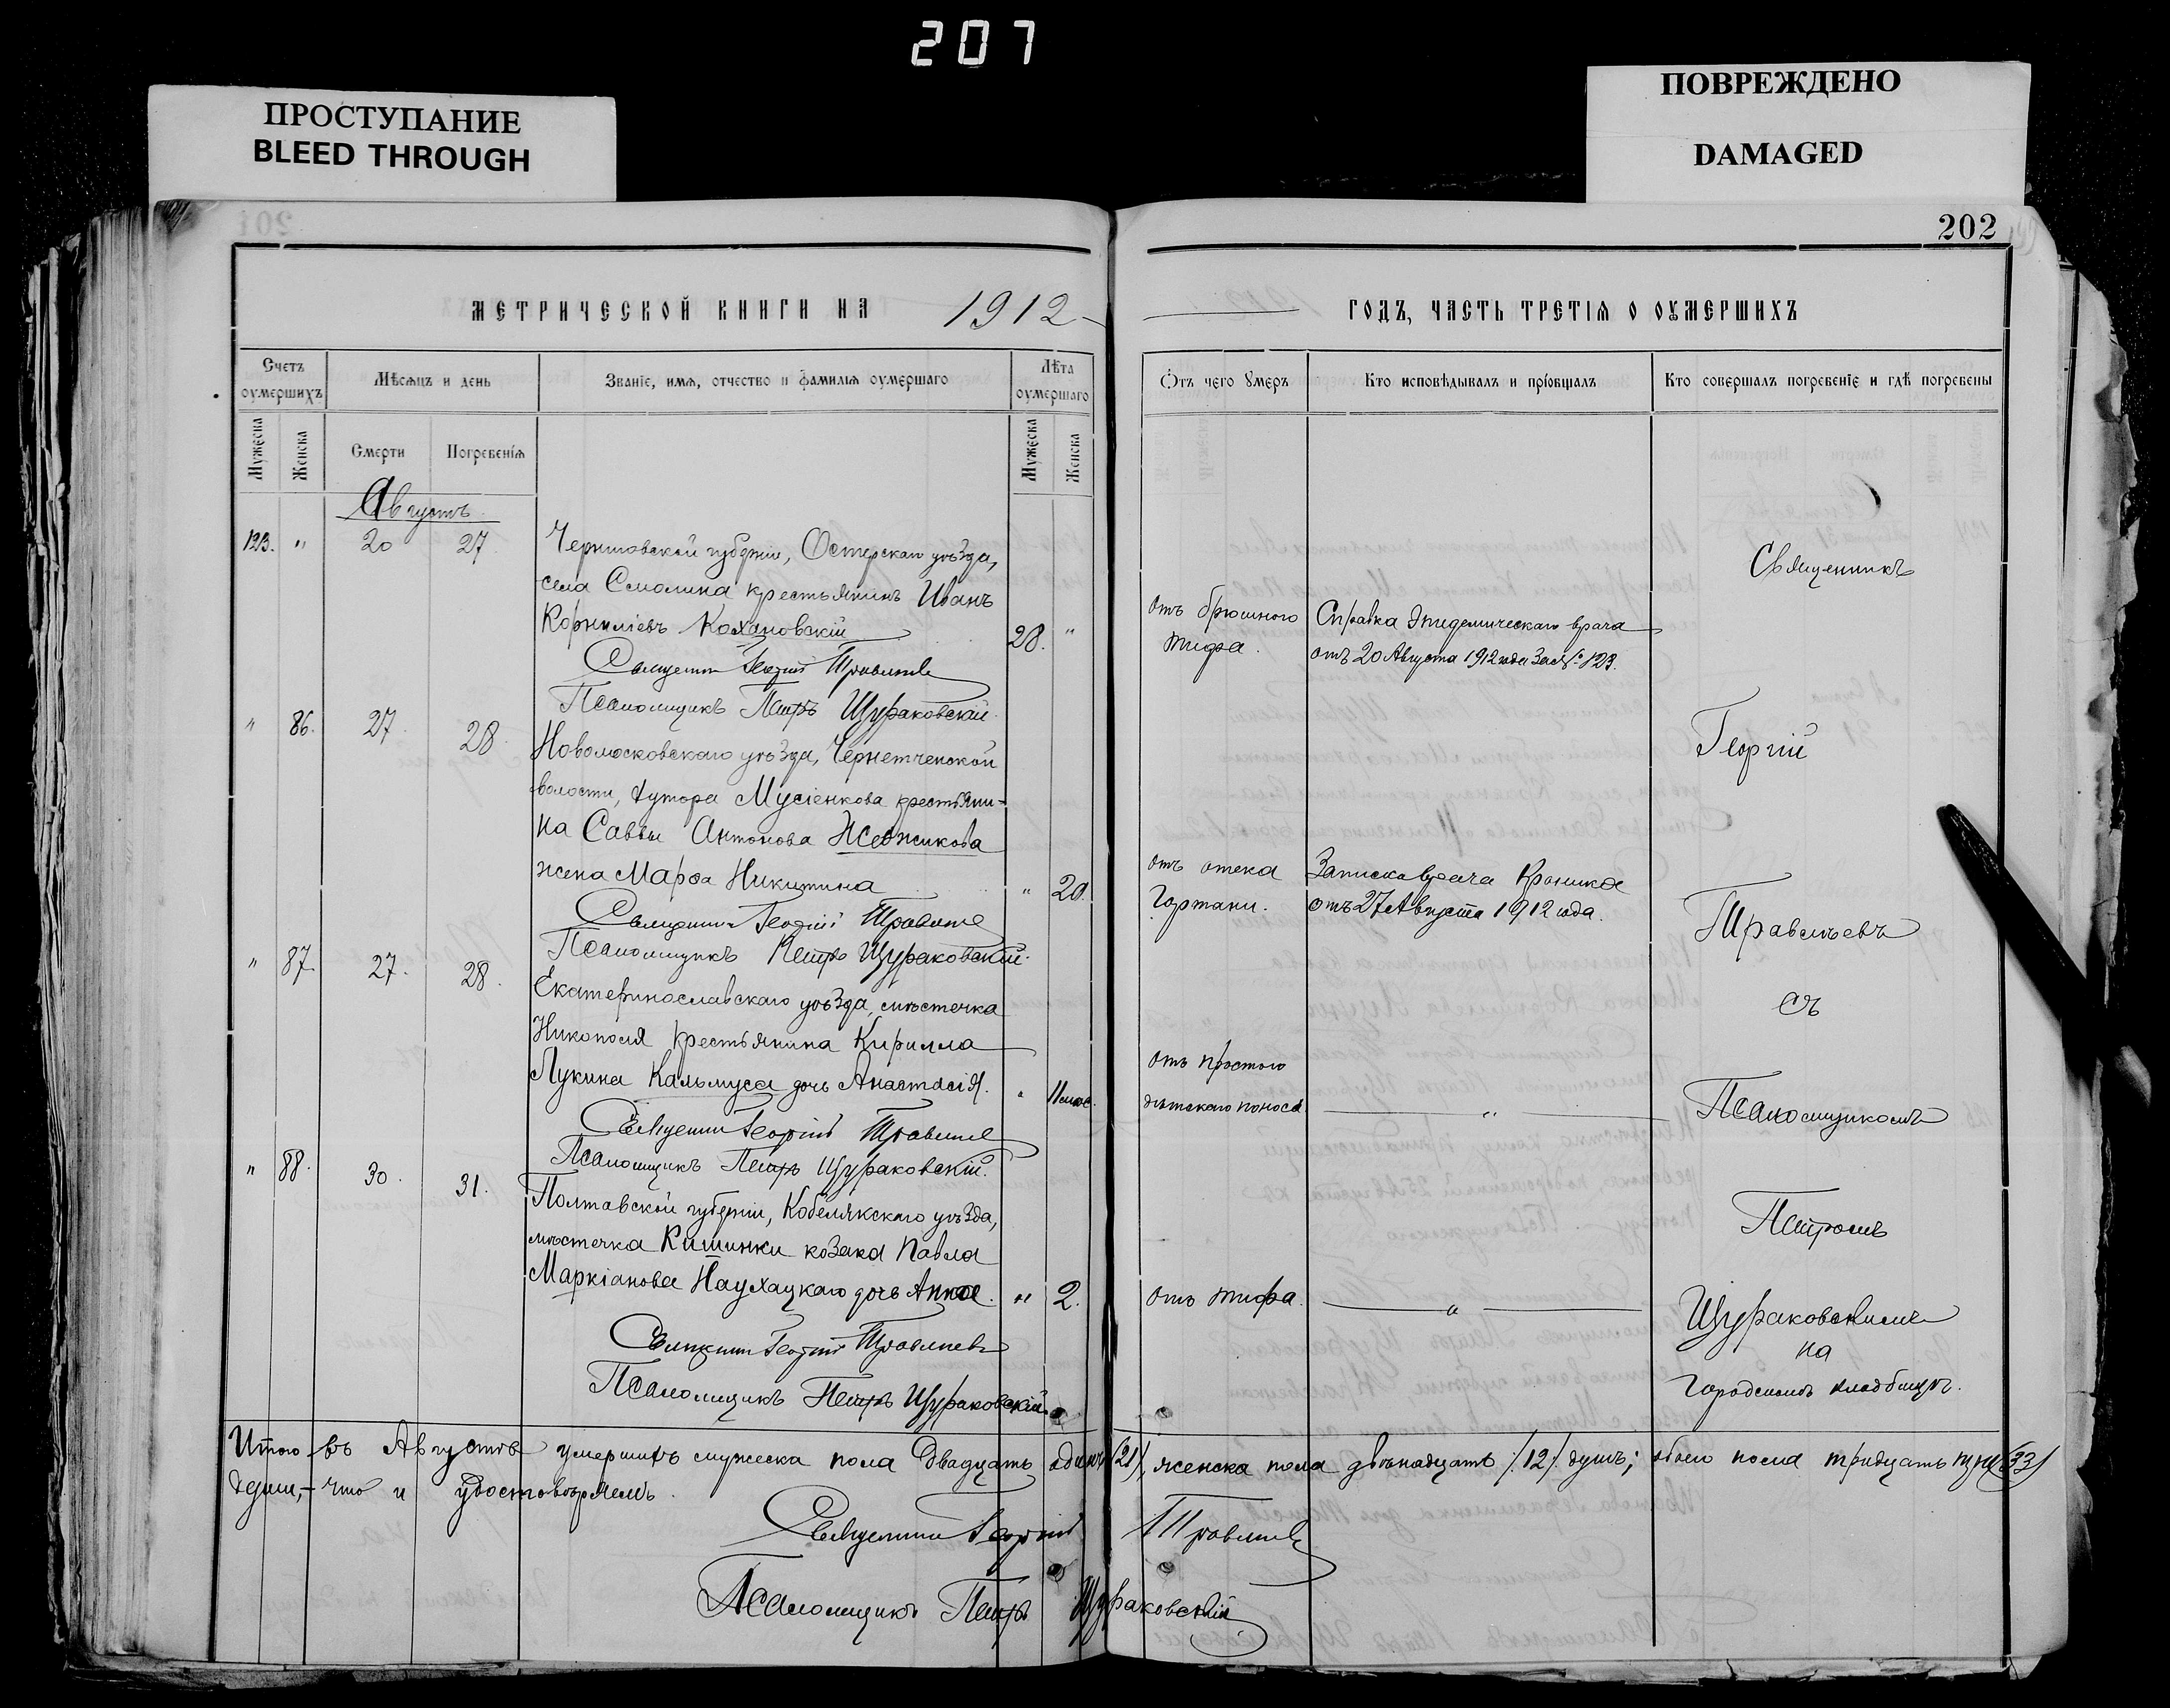 207
ПРОСТУПАНИЕ
BLEED THROUGH
ПОВРЕЖДЕНО
DAMAGED
202
МЕТРИЧЕСКОЙ КНИГИ НА 1912
ГОДЪ, ЧАСТЬ ТРЕТІѦ О ОУМЕРШИХЪ
Счетъ оумершихъ
Мѣсяцъ и день
Званіе, имѧ, отчество и фамиліѧ оумершаго
Лѣта оумершаго
Отъ чего умеръ
Кто исповѣдывалъ и пріобщалъ
Кто совершалъ погребеніе и гдѣ погребены
Мужеска
Женска
Смерти
Погребеніѧ
Мужеска
Женска
Августъ
123. " 20 27
Черниговской губерніи, Остерскаго уѣзда,
села Смолина крестьянинъ Иванъ
Корниліевъ Кохановскій
28. "
отъ брюшного
тифа.
Справка Эпидемическаго врача
отъ 20 Августа 1912 года За № 123.
Священникъ Георгій Травлѣевъ
Псаломщикъ Петръ Щураковскій.
" 86. 27. 28.
Новомосковскаго уѣзда, Чернетченской
волости, хутора Мусіенкова крестьяни-
на Саввы Антонова Жежикова
жена Марѳа Никитина
" 20.
отъ отека
Гортани.
Записка врача
отъ 27 Августа 1912 года.
Священникъ Георгій Травлѣевъ
Псаломщикъ Петръ Щураковскій.
" 87. 27. 28.
Екатеринославскаго уѣзда, мѣстечка
Никополя крестьянина Кирилла
Лукина Кальмуса дочь Анастасія.
" 11 мѣс.
отъ простого
дѣтскаго поноса
"
Священникъ Георгій Травлѣевъ
Псаломщикъ Петръ Щураковскій.
" 88. 30. 31.
Полтавской губерніи, Кобелякскаго уѣзда,
мѣстечка Кишинки козака Павла
Маркіанова Наухацкаго дочь Анна.
" 2.
отъ тифа.
"
Священникъ Георгій Травлѣевъ
Псаломщикъ Петръ Щураковскій.
Священникъ
Георгій
Травлѣевъ
съ
Псаломщикомъ
Петромъ
Щураковскимъ
на
Городскомъ кладбищѣ.
Итого въ Августѣ умершихъ мужеска пола двадцать одинъ (21), женска пола двѣнадцать /12/ душъ; обоего пола тридцать три (33)
души, – что и удостовѣряемъ.
Священникъ Георгій Травлѣевъ
Псаломщикъ Петръ Щураковскій